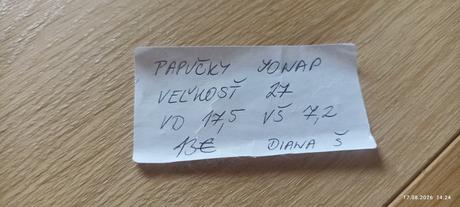 PAPUČKY JONAP
VEĽKOSŤ 27
VD 17,5 VŠ 7,2
13€ DIANA Š
17.08.2026 14:24